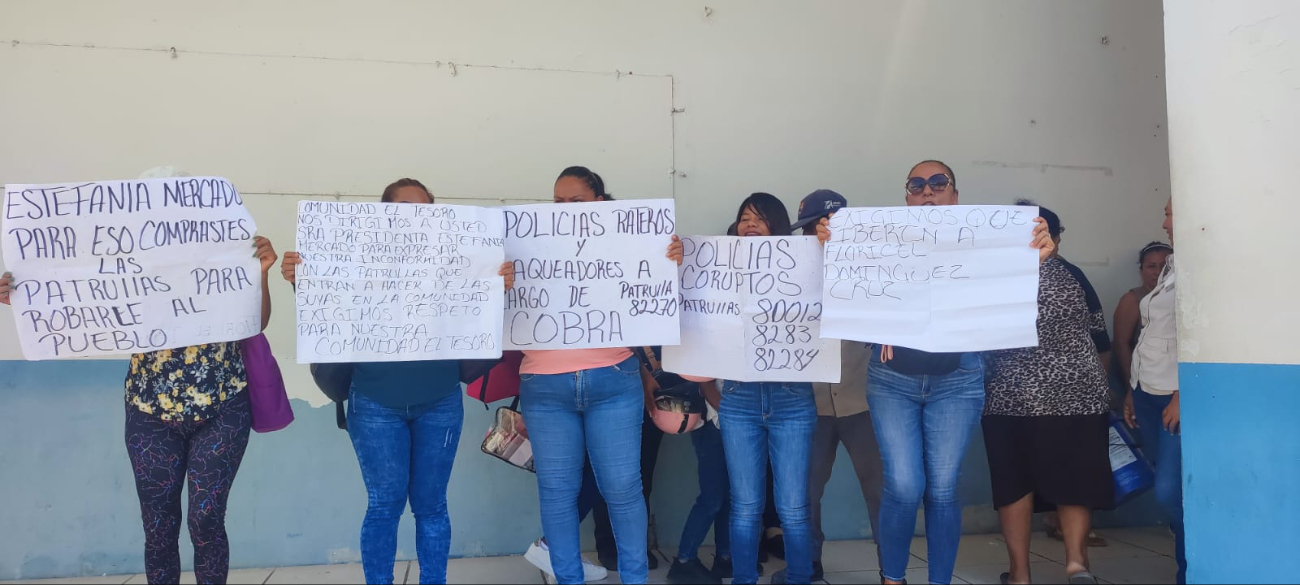 ESTEFANIA MERCADO
PARA ESO COMPRASTES
LAS
PATRUIIAS PARA
ROBARLE AL
PUEBLO
OMUNIDAD EL TESORO
NOS DIRIGIMOS A USTED
SRA PRESIDENTA ESTEFANIA
MERCADO PARA EXPRESAR
NUESTRA INCONFORALIDAD
CON LAS PATRULLAS QUE
ENTRAN A HACER DE LAS
SUYAS EN LA COMUNIDAD
EXIGIMOS RESPETO
PARA NUESTRA
COMUNIDAD EL TESORO
POLICIAS RATEROS
Y
AQUEADORES A
ARGO DE PATRUIIA
82270
COBRA
POLICIAS
CORUPTOS
PATRUIIAS 80012
8283
82284
EXIGIMOS QUE
LIBEREN A
FLORICEL
DAMINGUEZ
CRUZ